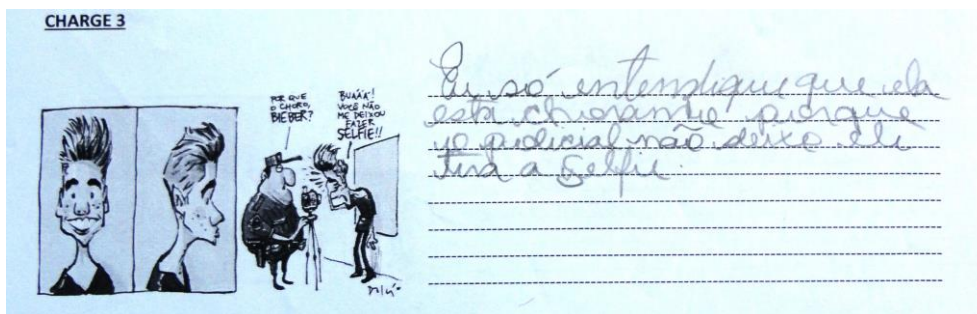 CHARGE 3
POR QUE
O CHORO,
BIEBER?
BUÁÁÁ!
VOCÊ NÃO
ME DEIXOU
FAZER
SELFIE!!
Eu só entendique que ela
está chorante porque
o pudicial não deixo ele
tira a Selfie.